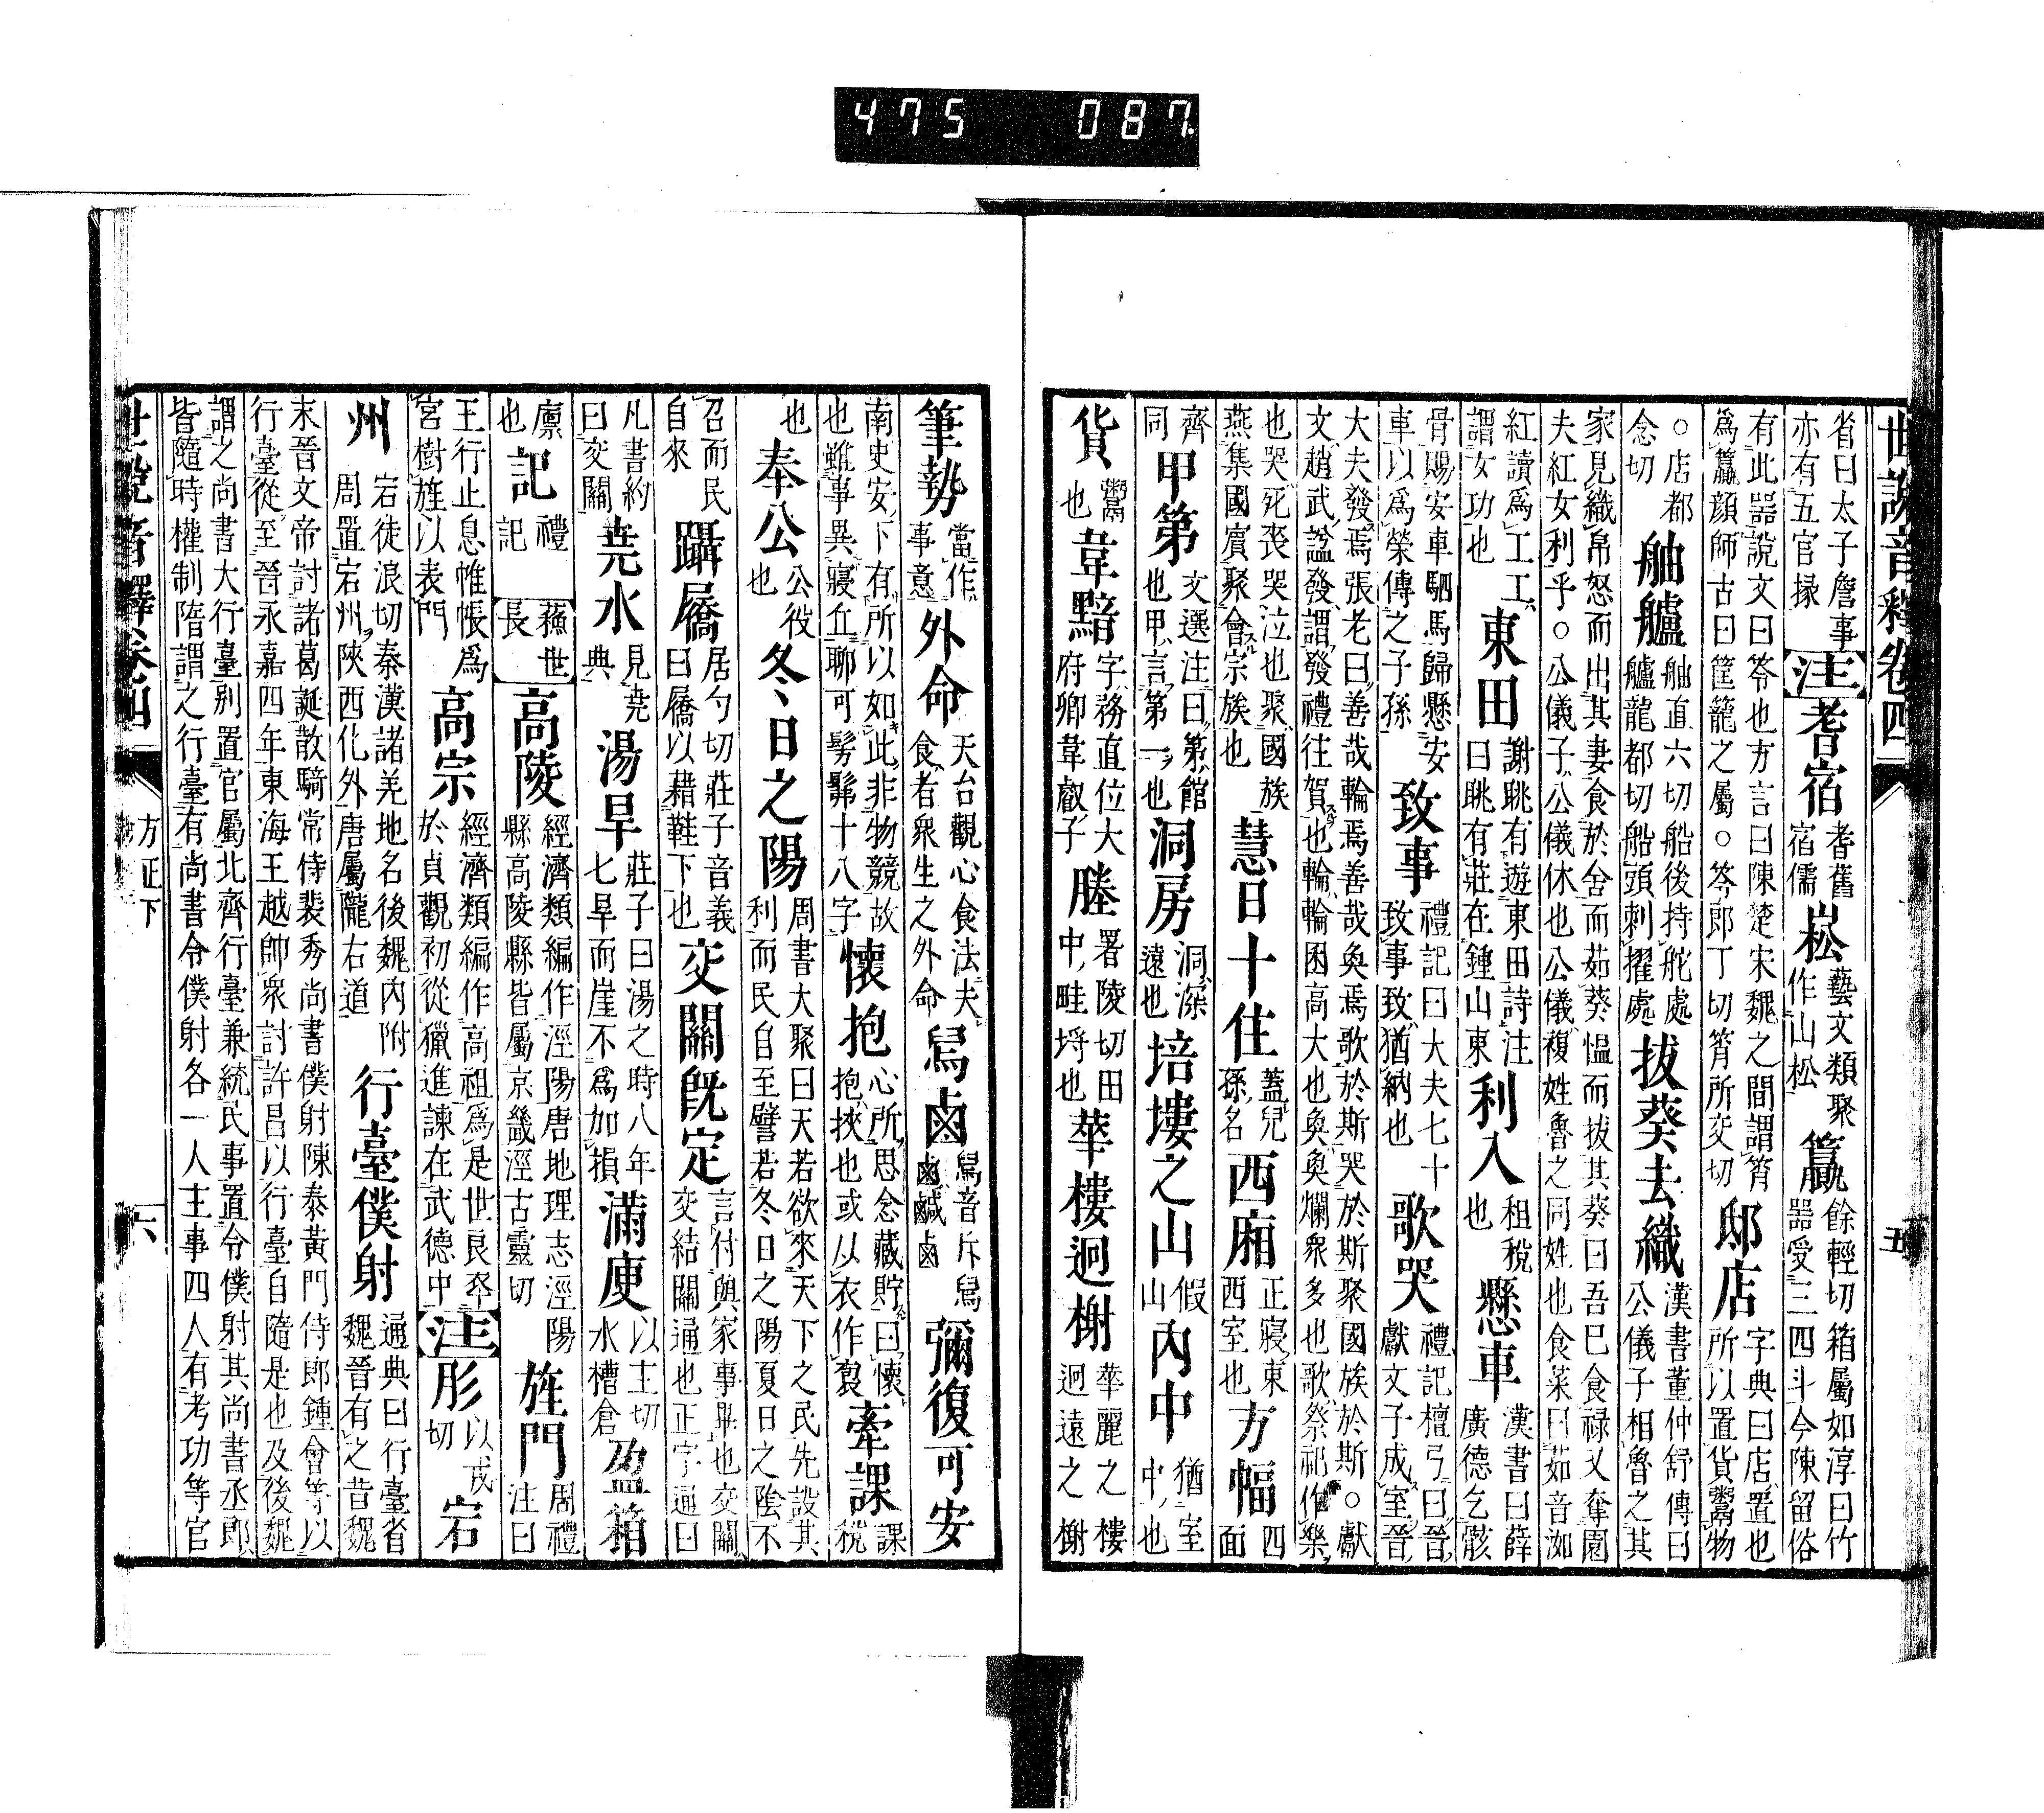 世說音釋卷四　五
省曰太子詹事亦有五官掾注耆宿耆舊宿儒崧藝文類聚作山松籯餘輕切箱屬如淳曰竹器受三四斗今陳留俗
有此器說文曰笭也方言曰陳楚宋魏之間謂筲爲籯顔師古曰筐籠之屬○笭郎丁切筲所交切邸店字典曰店置也所以置貨鬻物
○店都念切舳艫舳直六切船後持柁處艫龍都切船頭刺擢處拔葵去織漢書董仲舒傳曰公儀子相魯之其
家見織帛怒而出其妻食於舍而茹葵慍而拔其葵曰吾已食祿又奪園夫紅女利乎○公儀子公儀休也公儀複姓魯之同姓也食菜曰茹音洳
紅讀爲工工謂女功也東田謝眺有遊東田詩注曰眺有莊在鍾山東利入租稅也懸車漢書曰薛廣德乞骸
骨賜安車駟馬歸懸安車以爲榮傳之子孫致事禮記曰大夫七十致事致猶納也歌哭禮記檀弓曰晉獻文子成室晉
大夫發焉張老曰善哉輪焉善哉奐焉歌於斯哭於斯聚國族於斯○獻文趙武謚發謂發禮往賀也輪輪囷高大也奐奐爛衆多也歌祭祀作樂
也哭死喪哭泣也聚國族燕集國賓聚會宗族也慧日十住蓋兒孫名西廂正寢東西室也方幅四面
齊同甲第文選注曰第館也甲言第一也洞房洞深遠也培塿之山假山內中猶室中也
貨鬻也韋黯字務直位大府卿韋叡子塍署陵切田中畦埒也華樓迥榭華麗之樓迥遠之榭
筆勢當作事意外命天台觀心食法夫食者衆生之外命舃鹵舃音斥舃鹵鹹鹵彌復可安
南史安下有所以如此非物競故也雖事異寢丘聊可髣髴十八字懷抱心所思念藏貯曰懷抱挾也或以衣作裒牽課課稅
也奉公公役也冬日之陽周書大聚曰天若欲來天下之民先設其利而民自至譬若冬日之陽夏日之陰不
召而民自來躡屩居勺切莊子音義曰屩以藉鞋下也交關既定言付與家事畢也交關交結關通也正字通曰
凡書約曰交關堯水見堯典湯旱莊子曰湯之時八年七旱而崖不爲加損滿庾以主切水槽倉盈箱
廪也記禮記蘓世長高陵經濟類編作涇陽唐地理志涇陽縣高陵縣皆屬京畿涇古靈切旌門周禮注曰
王行止息帷帳爲宮樹旌以表門高宗經濟類編作高祖爲是世良卒於貞觀初從獵進諫在武德中注肜以戎切宕
州宕徒浪切秦漢諸羌地名後魏內附周置宕州陝西化外唐屬隴右道行臺僕射通典曰行臺省魏晉有之昔魏
末晉文帝討諸葛誕散騎常侍裴秀尚書僕射陳泰黃門侍郎鍾會等以行臺從至晉永嘉四年東海王越帥衆討許昌以行臺自隨是也及後魏
謂之尚書大行臺別置官屬北齊行臺兼統民事置令僕射其尚書丞郎皆隨時權制隋謂之行臺有尚書令僕射各一人主事四人有考功等官
世說音釋卷四　方正下　六
475 087